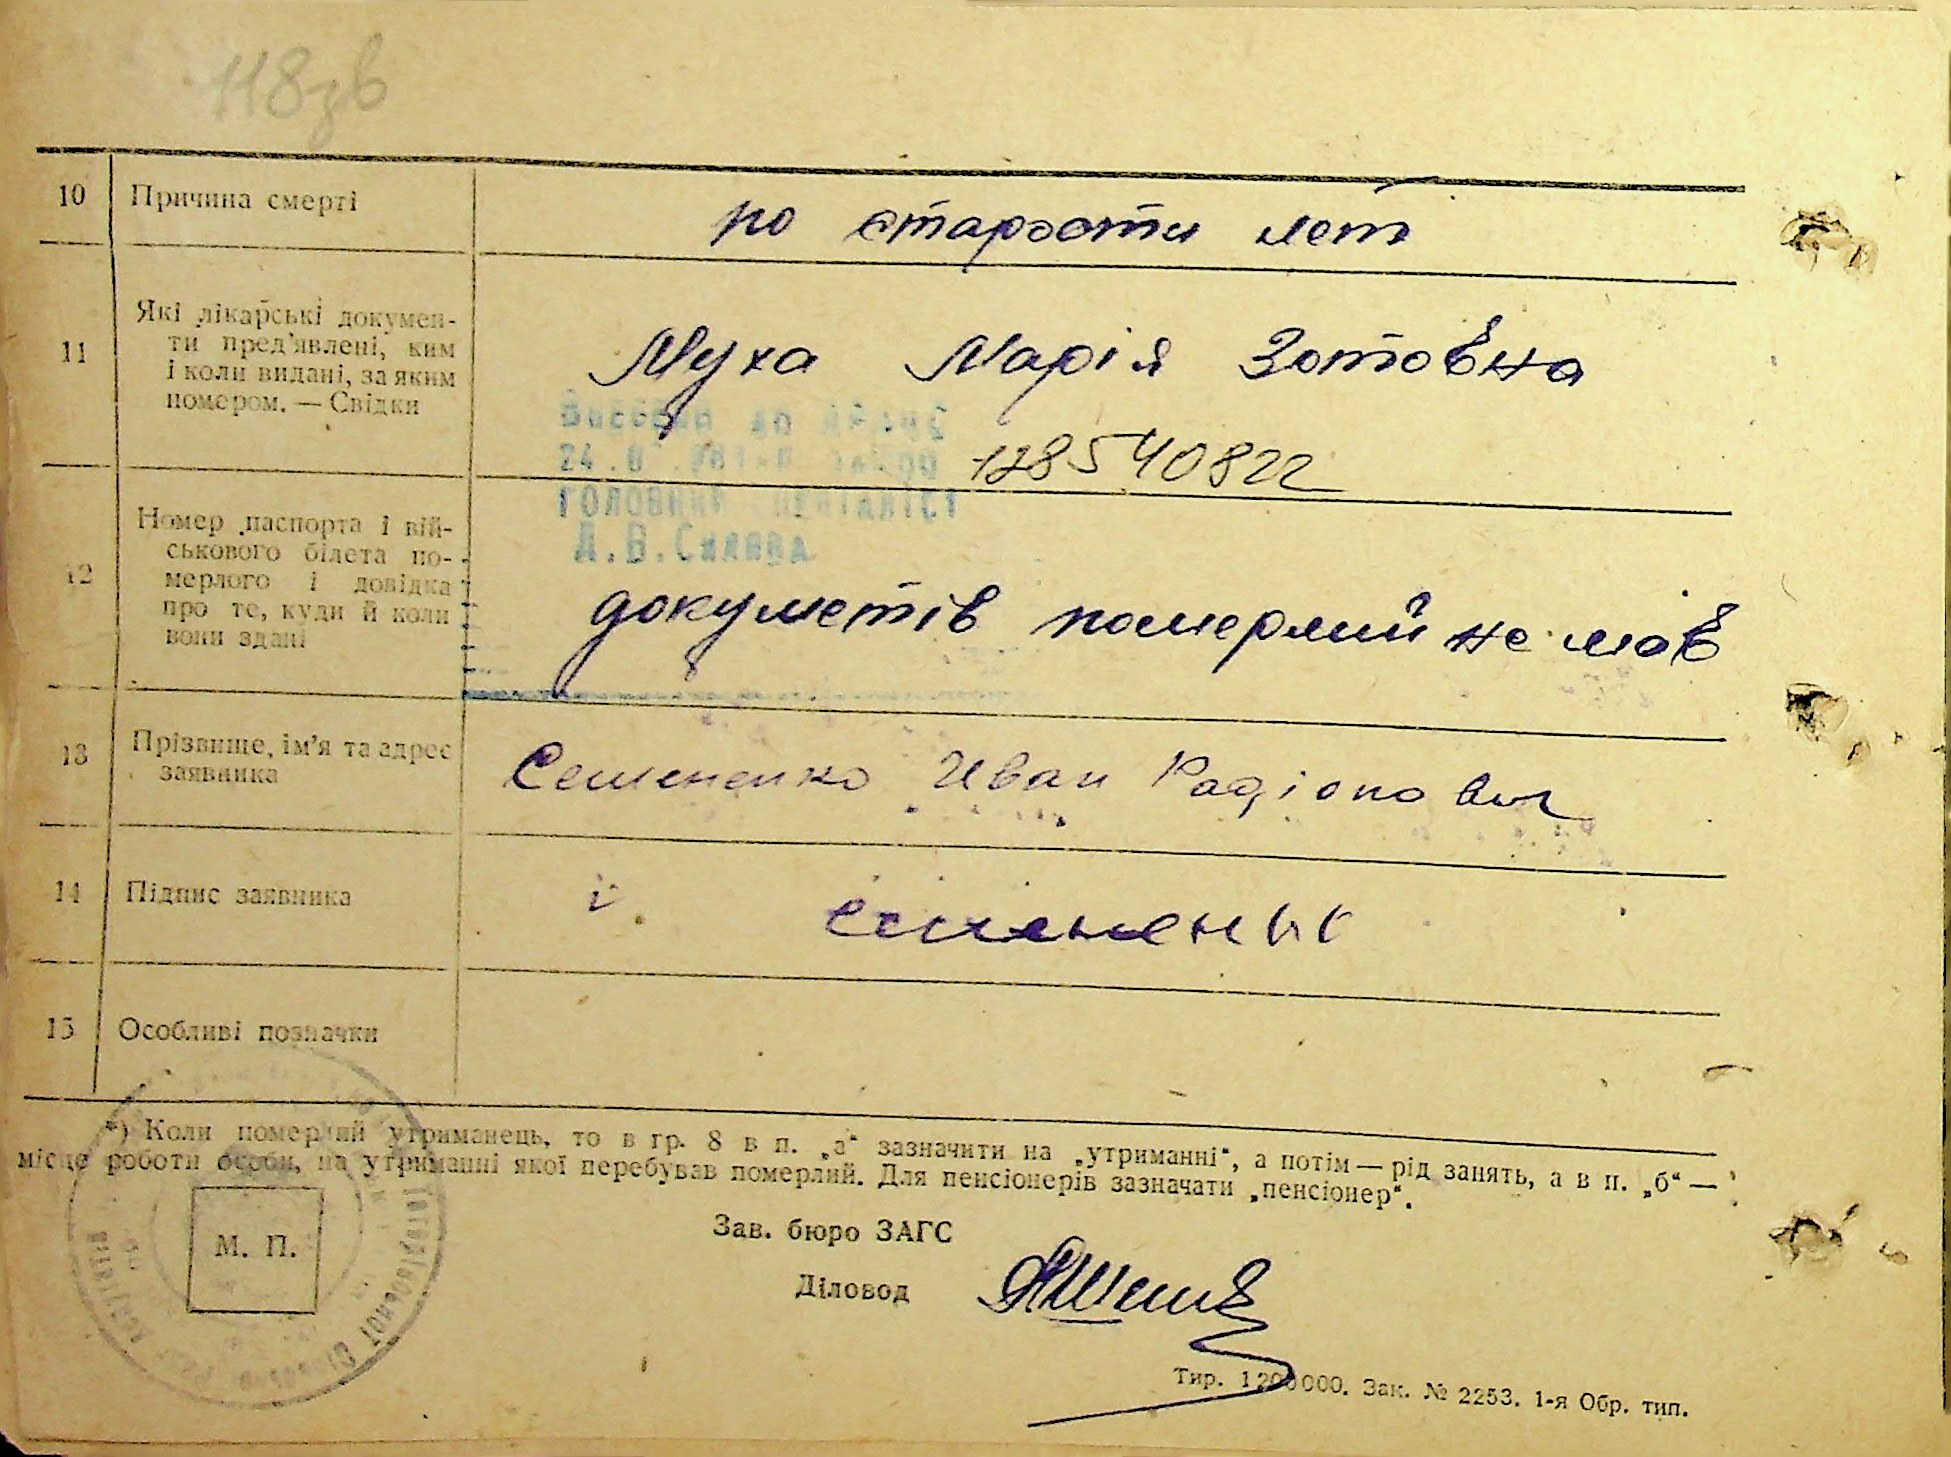 118зв
10 Причина смерті по старости лет
11 Які лікарські докумен-
ти пред'явлені, ким
і коли видані, за яким
номером. — Свідки
Муха Марія Зотовна
24.0
128540822
ГОЛОВНИЙ СПЕЦІАЛІСТ
12 Номер паспорта і вій-
ськового білета по-
мерлого і довідка
про те, куди й коли
вони здані
докуметів померлий не мав
13 Прізвище, ім'я та адрес
заявника
Семененко Иван Радіонович
14 Підпис заявника
15 Особливі позначки
*) Коли померлий утриманець, то в гр. 8 в п. „а“ зазначити на „утриманні“, а потім — рід занять, а в п. „б“ —
місце роботи особи, на утриманні якої перебував померлий. Для пенсіонерів зазначати „пенсіонер“.
М. П.
Зав. бюро ЗАГС
Діловод
Тир. 1200000. Зак. № 2253. 1-я Обр. тип.